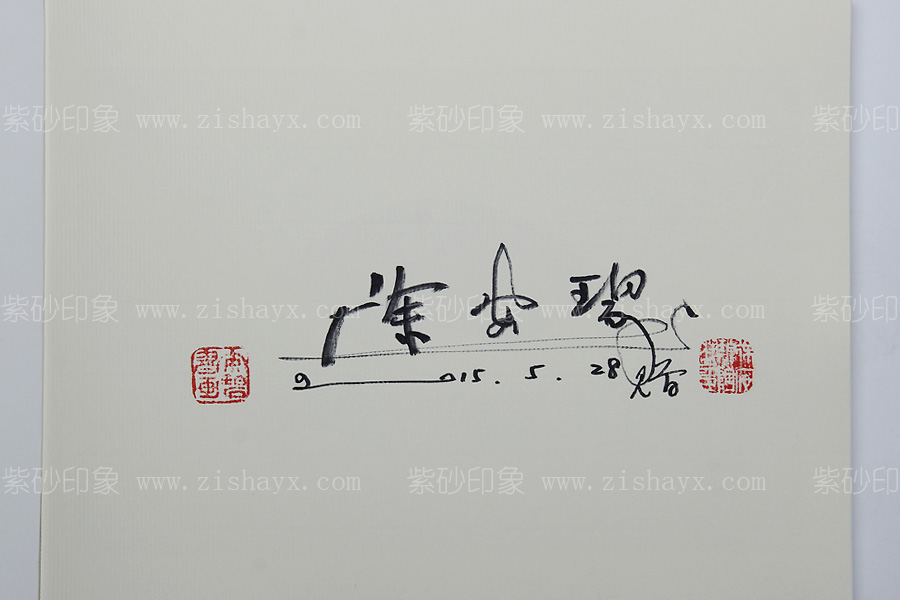 紫砂印象 www.zishayx.com 紫砂印象 www.zishayx.com 紫砂印
徐安碧
紫砂印象 www.zishayx.com 紫砂印象 www.zishayx.com 紫砂印
2015.5.28
紫砂印象 www.zishayx.com 紫砂印象 www.zishayx.com 紫砂印